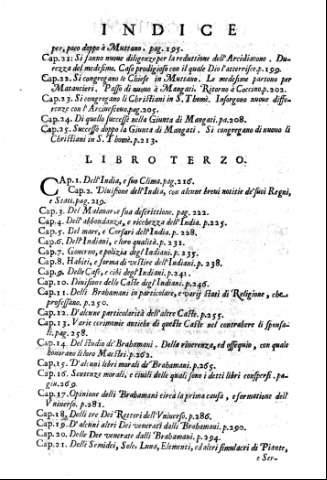 INDICE
per, poco doppo à Muttano. pag.195.
Cap.21. Si fanno nuove diligenze per la reduttione dell'Arcidiacono. Du-
rezza del medesimo. Caso prodigioso con il quale Dio l'atterrisce.p.199.
Cap.22. Si congregano le Chiese in Muttano. Le medesime partono per
Matancieri. Passo di nuovo à Mangati. Ritorno à Coccino.pag.202.
Cap.23. Si congregano li Christiani in S.Thomè. Insorgono nuove diffe-
renze con l'Arcivescovo.pag.205.
Cap.24. Di quello successe nella Giunta di Mangati.pa.208.
Cap.25. Successo doppo la Giunta di Mangati. Si congregano di nuovo li
Christiani in S.Thomè.p.213.
LIBRO TERZO.
CAp.1. Dell'India, e suo Clima.pag.216.
Cap.2. Divisione dell'India, con alcune brevi notitie de'suoi Regni,
e Stati.pag.219.
Cap.3. Del Malavar, e sua descrittione. pag.222.
Cap.4. Dell'abbondanza, e ricchezza dell'India. p.225.
Cap.5. Del mare, e Corsari dell'India. p.228.
Cap.6. Dell'Indiani, e loro qualità.p.231.
Cap.7. Governo, e polizia degl'Indiani. p.235.
Cap.8. Habiti, e forma di vestire dell'Indiani.p.238.
Cap.9. Delle Case, e cibi degl'Indiani.p.241.
Cap.10. Divisione delle Caste degl'Indiani.p.246.
Cap.11. Delli Brahamani in particolare, e varij stati di Religione, che
professano. p.250.
Cap.12. D'alcune particolarità dell'altre Caste.p.255.
Cap.13. Varie cerimonie antiche di queste Caste nel contrahere li sponsa-
li.pag.258.
Cap.14. Del studio de'Brahamani. Della riverenza, ed ossequio, con quale
honorano li loro Maestri.p.262.
Cap.15. D'alcuni libri morali de'Brahamani.p.265.
Cap.16. Sentenze morali, e civili delle quali sono i detti libri conspersi. pa-
gin.269.
Cap.17. Opinione delli Brahamani circa la prima causa, e formatione dell'
Vniverso. p.281.
Cap.18. Delli tre Dei Rettori dell'Vniverso. p.286.
Cap.19. D'alcuni altri Dei venerati dalli Brahamani. p.290.
Cap.20. Delle Dee venerate dalli Brahamani. p.294.
Cap.21. Delli Semidei, Sole, Luna, Elementi, ed altri simulacri di Piante,
e Ser-